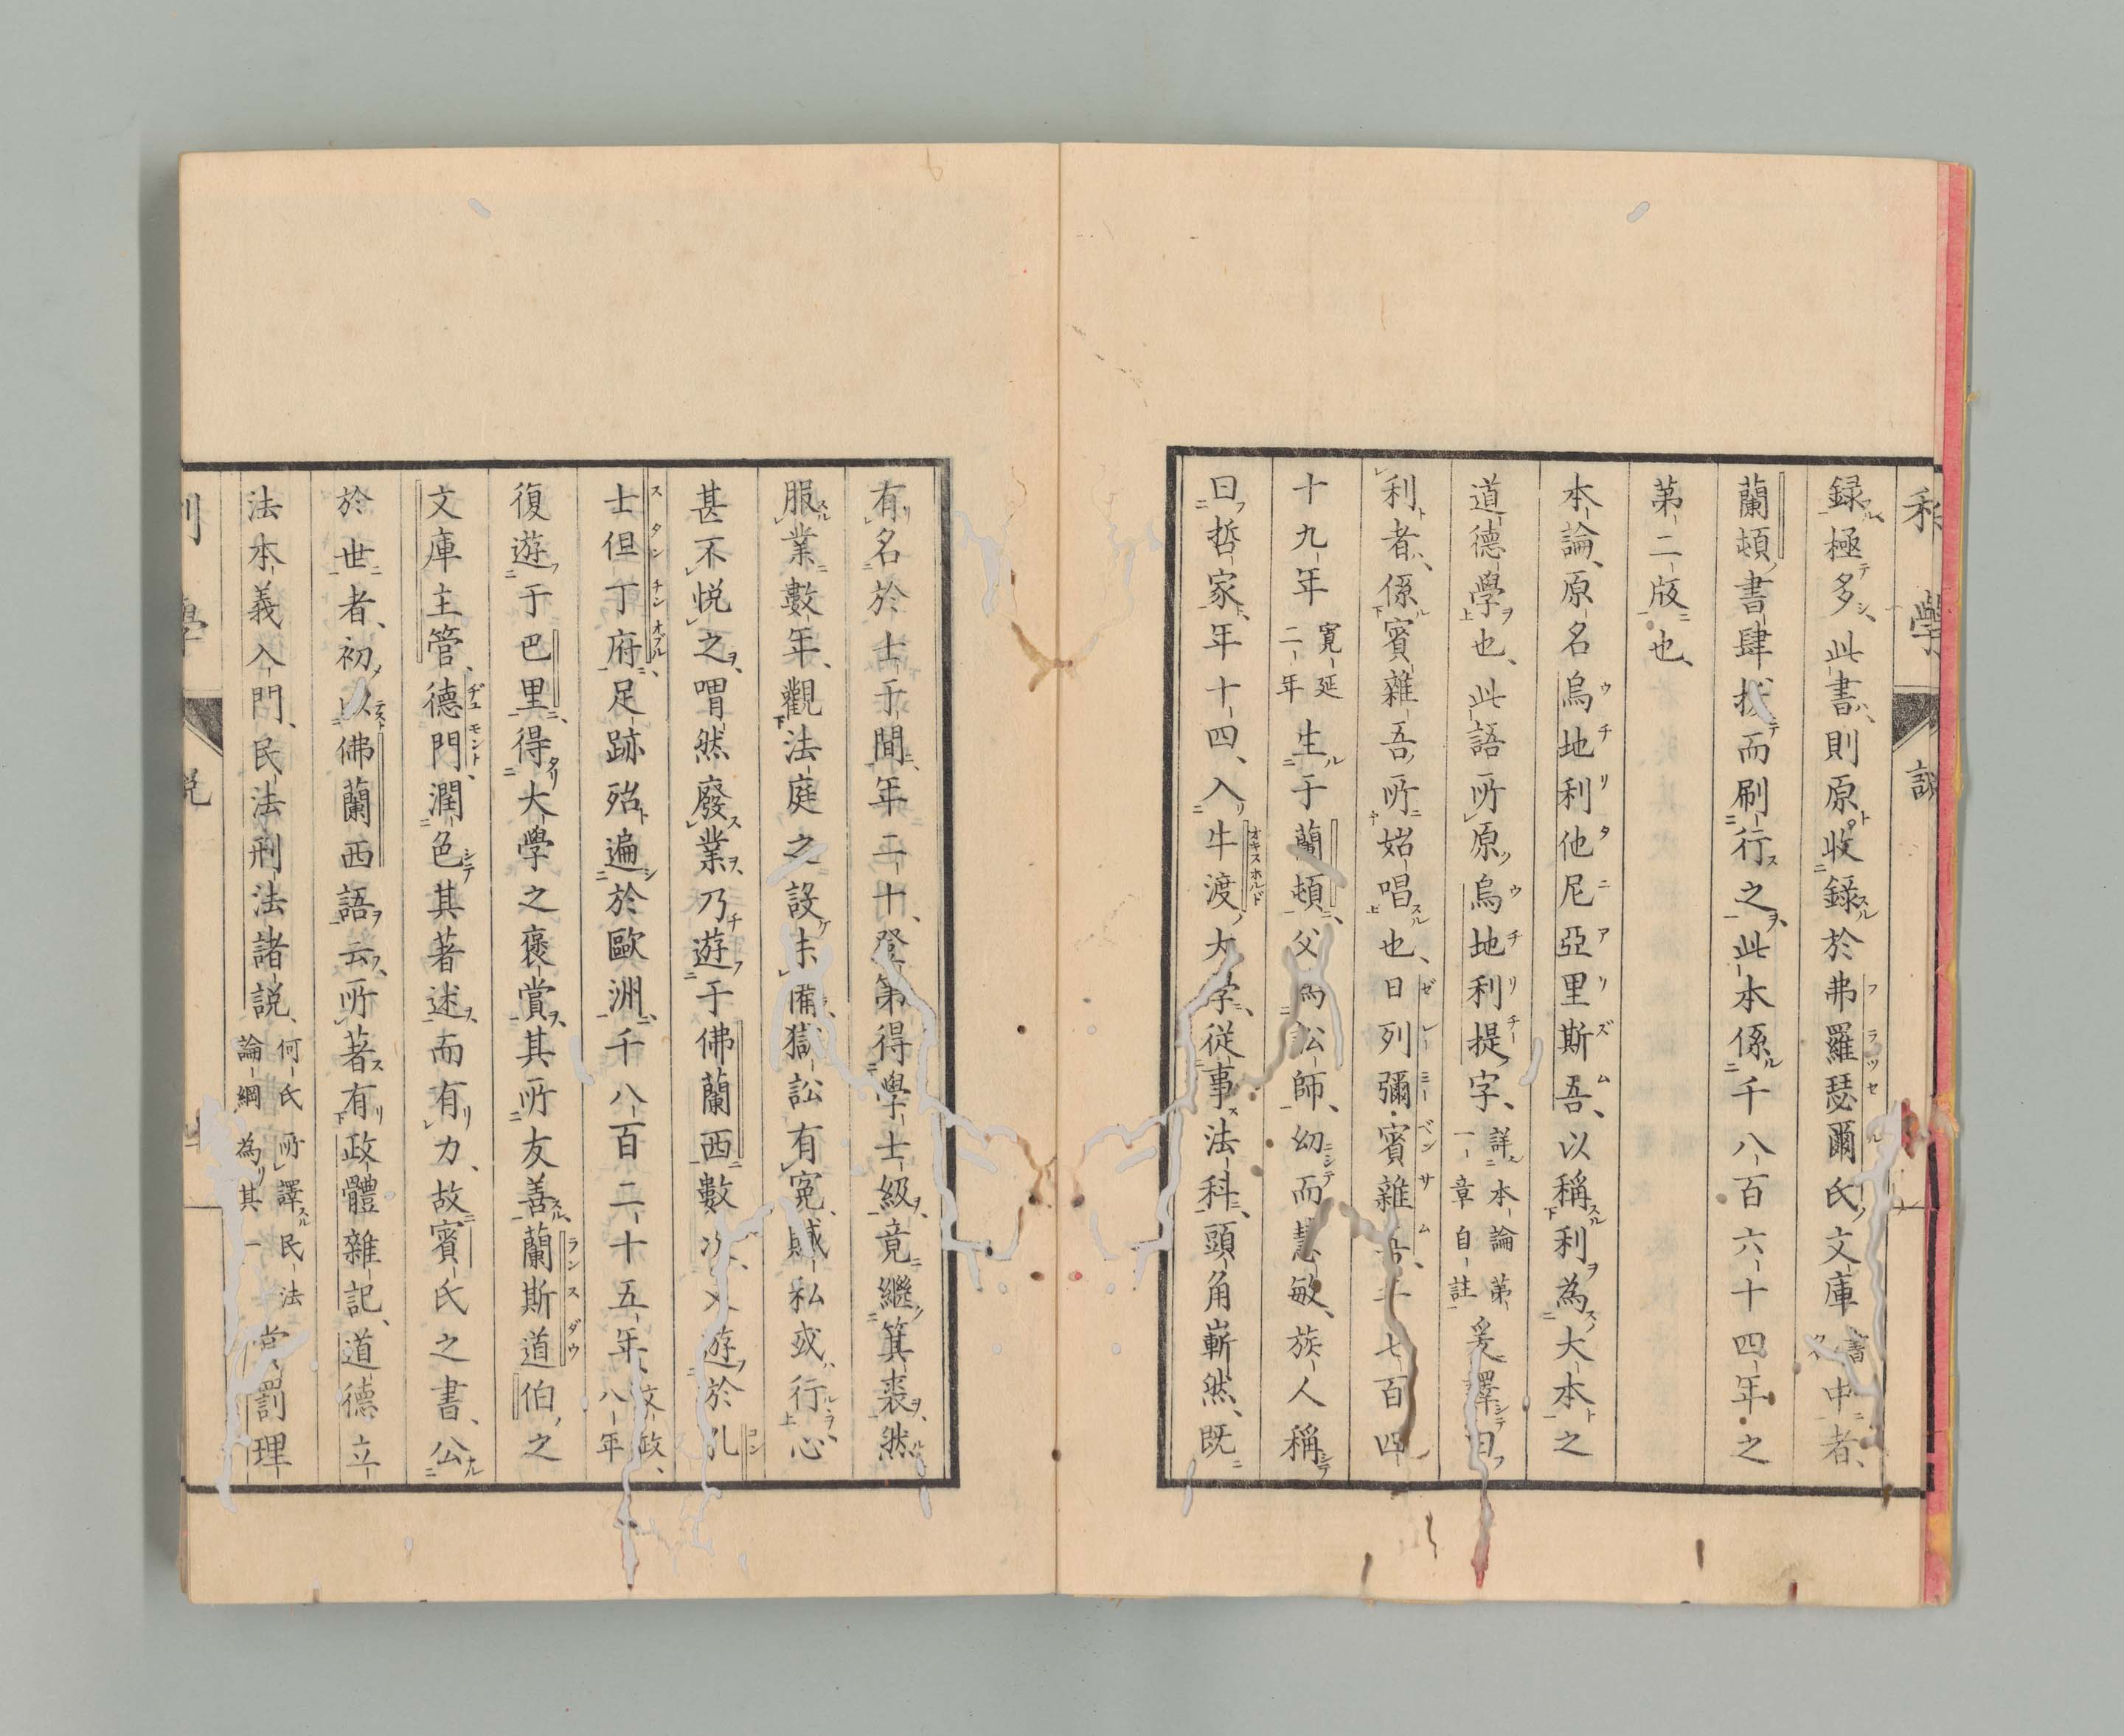 利學 說
録極多、此書、則原收錄於弗羅瑟爾氏文庫 書 中者、
蘭頓書肆拔而刷行之、此本係千八百六十四年之
第二版也、
本論、原名烏地利他尼亞里斯吾、以稱利為大本之
道德學也、此語所原烏地利提字、詳本論第一章自註 爰譯曰
利者、係賓雜吾所始唱也、日列彌賓雜吾、千七百四
十九年 寛延二年 生于蘭頓、父為訟師、幼而慧敏、族人稱
曰哲家、年十四、入牛渡大學、從事法科、頭角嶄然、既
有名於士子間、年二十、登第得學士級、竟繼箕裘、然
服業數年、觀法庭之設未備、獄訟有寃、賊私或行心
甚不悅之、喟然廢業、乃遊于佛蘭西數次、又遊於孔
士但丁府、足跡殆遍於歐洲、千八百二十五年、文政八年
復遊于巴里、得大學之褒賞、其所友善、蘭斯道伯之
文庫主管、德門潤色其著述、而有力、故賓氏之書、公
於世者、初以佛蘭西語云、所著有政體雜記、道德立
法本義入門、民法刑法諸説、何氏所譯民法論綱為其一 賞罰理
利學 說